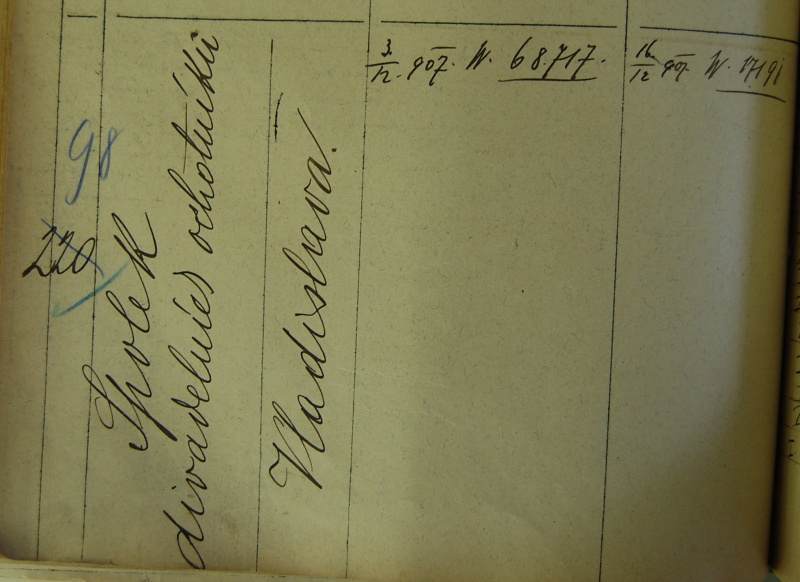 98
220
Spolek
divadelních ochotníků
Vladislava.
3./12. 907. N. 68.717.
16./12 907. N. 17191